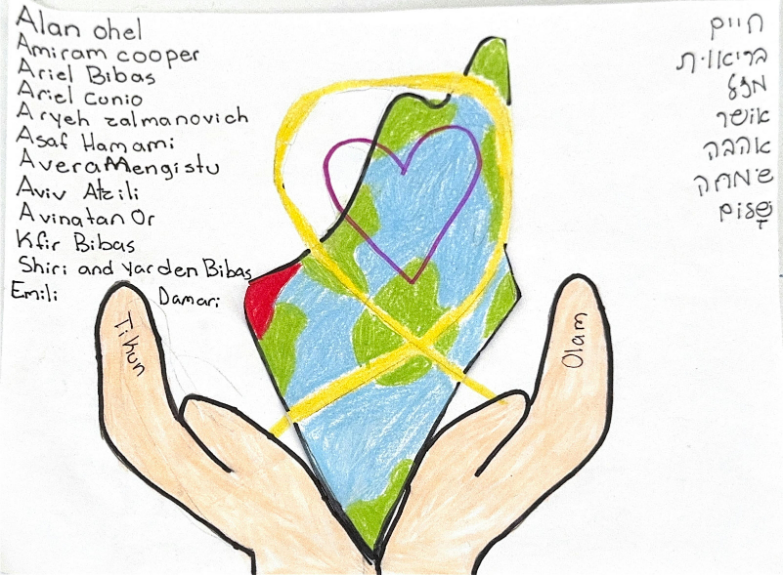 Alan ohel
Amiram cooper
Ariel Bibas
Ariel cunio
Aryeh zalmanovich
Asaf Hamami
Avera Mengistu
Aviv Atzili
Avinatan Or
Kfir Bibas
Shiri and Yarden Bibas
Emili Damari
חיים
בריאות
מזל
אושר
אהבה
שמחה
שָׁלוֹם
Tikun
Olam